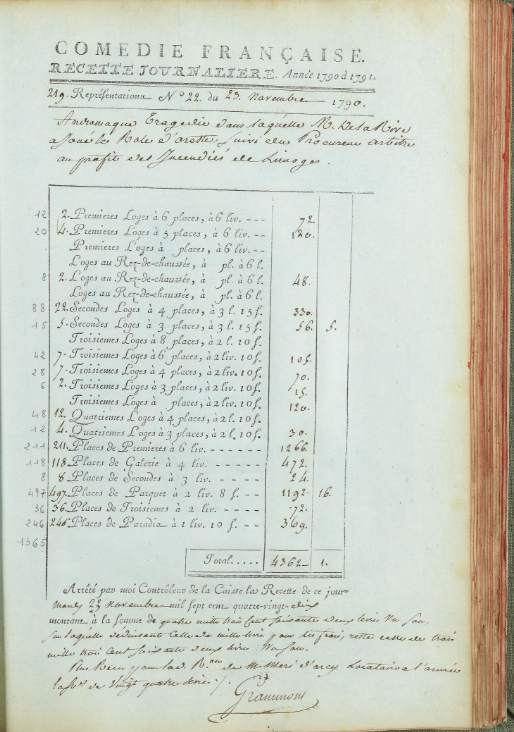 COMEDIE FRANÇAISE.
RECETTE JOURNALIERE. Année 1790 à 1791.
219. Représentations N.º 22. du 23. novembre 1790.
Andromaque Tragedie dans laquelle M. De la Rive
a joué le Role d'oreste, suivi du Procureur arbitre
au profit des Incendiés de Limoges.
12 2. Premieres Loges à 6 places, à 6 liv. - - - 72.
20 4. Premieres Loges à 5 places, à 6 liv. - - - 120.
Premieres Loges à places, à 6 liv. - - -
Loges au Rez-de-chaussée, à pl. à 6 l.
8 2. Loges au Rez-de-chaussée, à pl. à 6 l. 48.
Loges au Rez-de-chaussée, à pl. à 6 l.
88 22. Secondes Loges à 4 places, à 3 l. 15 ſ. 330.
15 5. Secondes Loges à 3 places, à 3 l. 15 ſ. 56. 5.
Troisiemes Loges à 8 places, à 2 l. 10 ſ.
42 7. Troisiemes Loges à 6 places, à 2 liv. 10 ſ. 105.
28 7. Troisiemes Loges à 4 places, à 2 liv. 10 ſ. 70.
6 2. Troisiemes Loges à 3 places, à 2 liv. 10 ſ. 15.
Troisiemes Loges à places, à 2 liv. 10 ſ.
48 12. Quatriemes Loges à 4 places, à 2 l. 10 ſ. 120.
12 4. Quatriemes Loges à 3 places, à 2 l. 10 ſ. 30.
211 211. Places de Premieres à 6 liv. - - - - - - - 1266.
118 118. Places de Galerie à 4 liv. - - - - - - 472.
8 8. Places de Secondes à 3 liv. - - - - - - 24.
497 497. Places de Parquet à 2 liv. 8 ſ. - - - 1192. 16.
36 36. Places de Troisiemes à 2 liv. - - - - - 72.
246 246. Places de Paradis à 1 liv. 10 ſ. - - - 369.
1365
Total..... 4362 1.
Arrêté par moi Contrôleur de la Caisse la Recette de ce jour
mardy 23 novembre mil sept cent quatre-vingt-dix
montant à la somme de quatre mille trois cent soixante deux livres un sou,
sur laquelle déduisant celle de mille livres pour les frais, reste celle de trois
mille trois cent soixante deux livres un sou.
d'arcy Locataire à l'année
de vingt quatre livres
Grammont